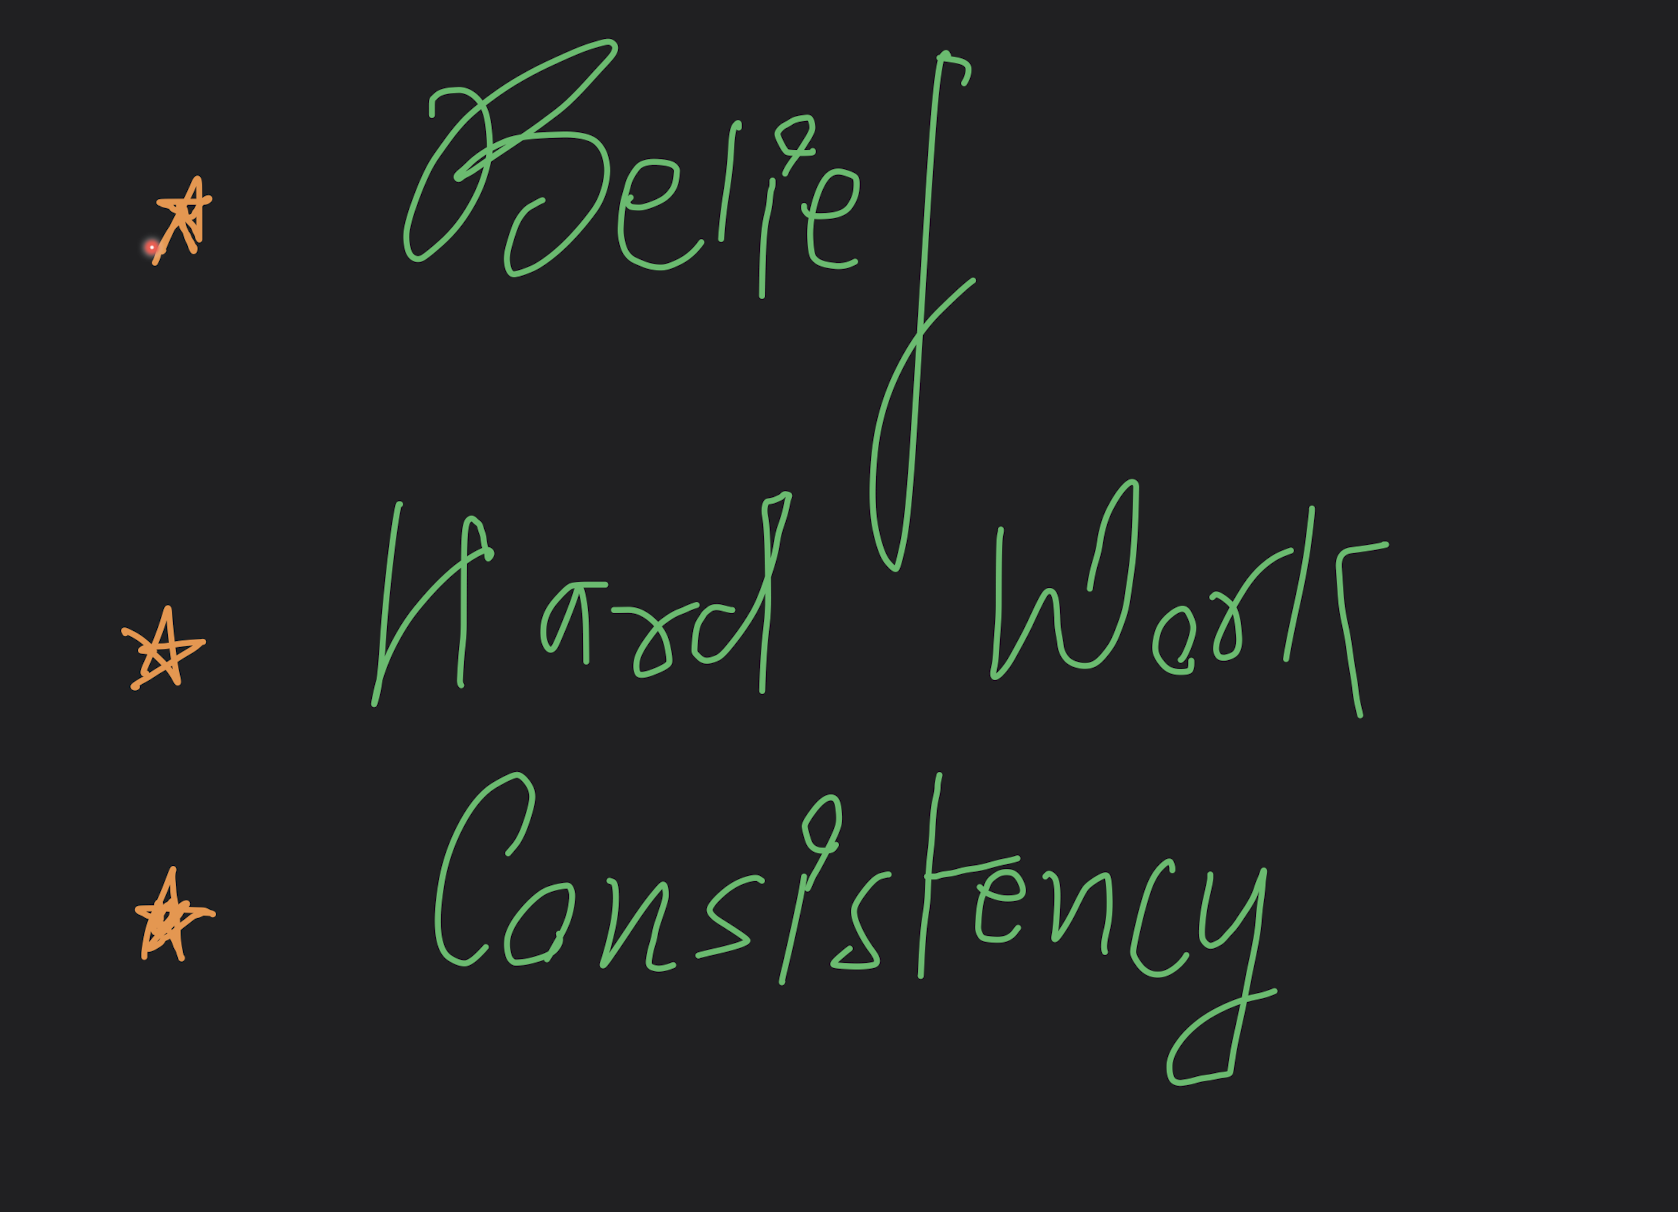 Belief
Hard Work
Consistency